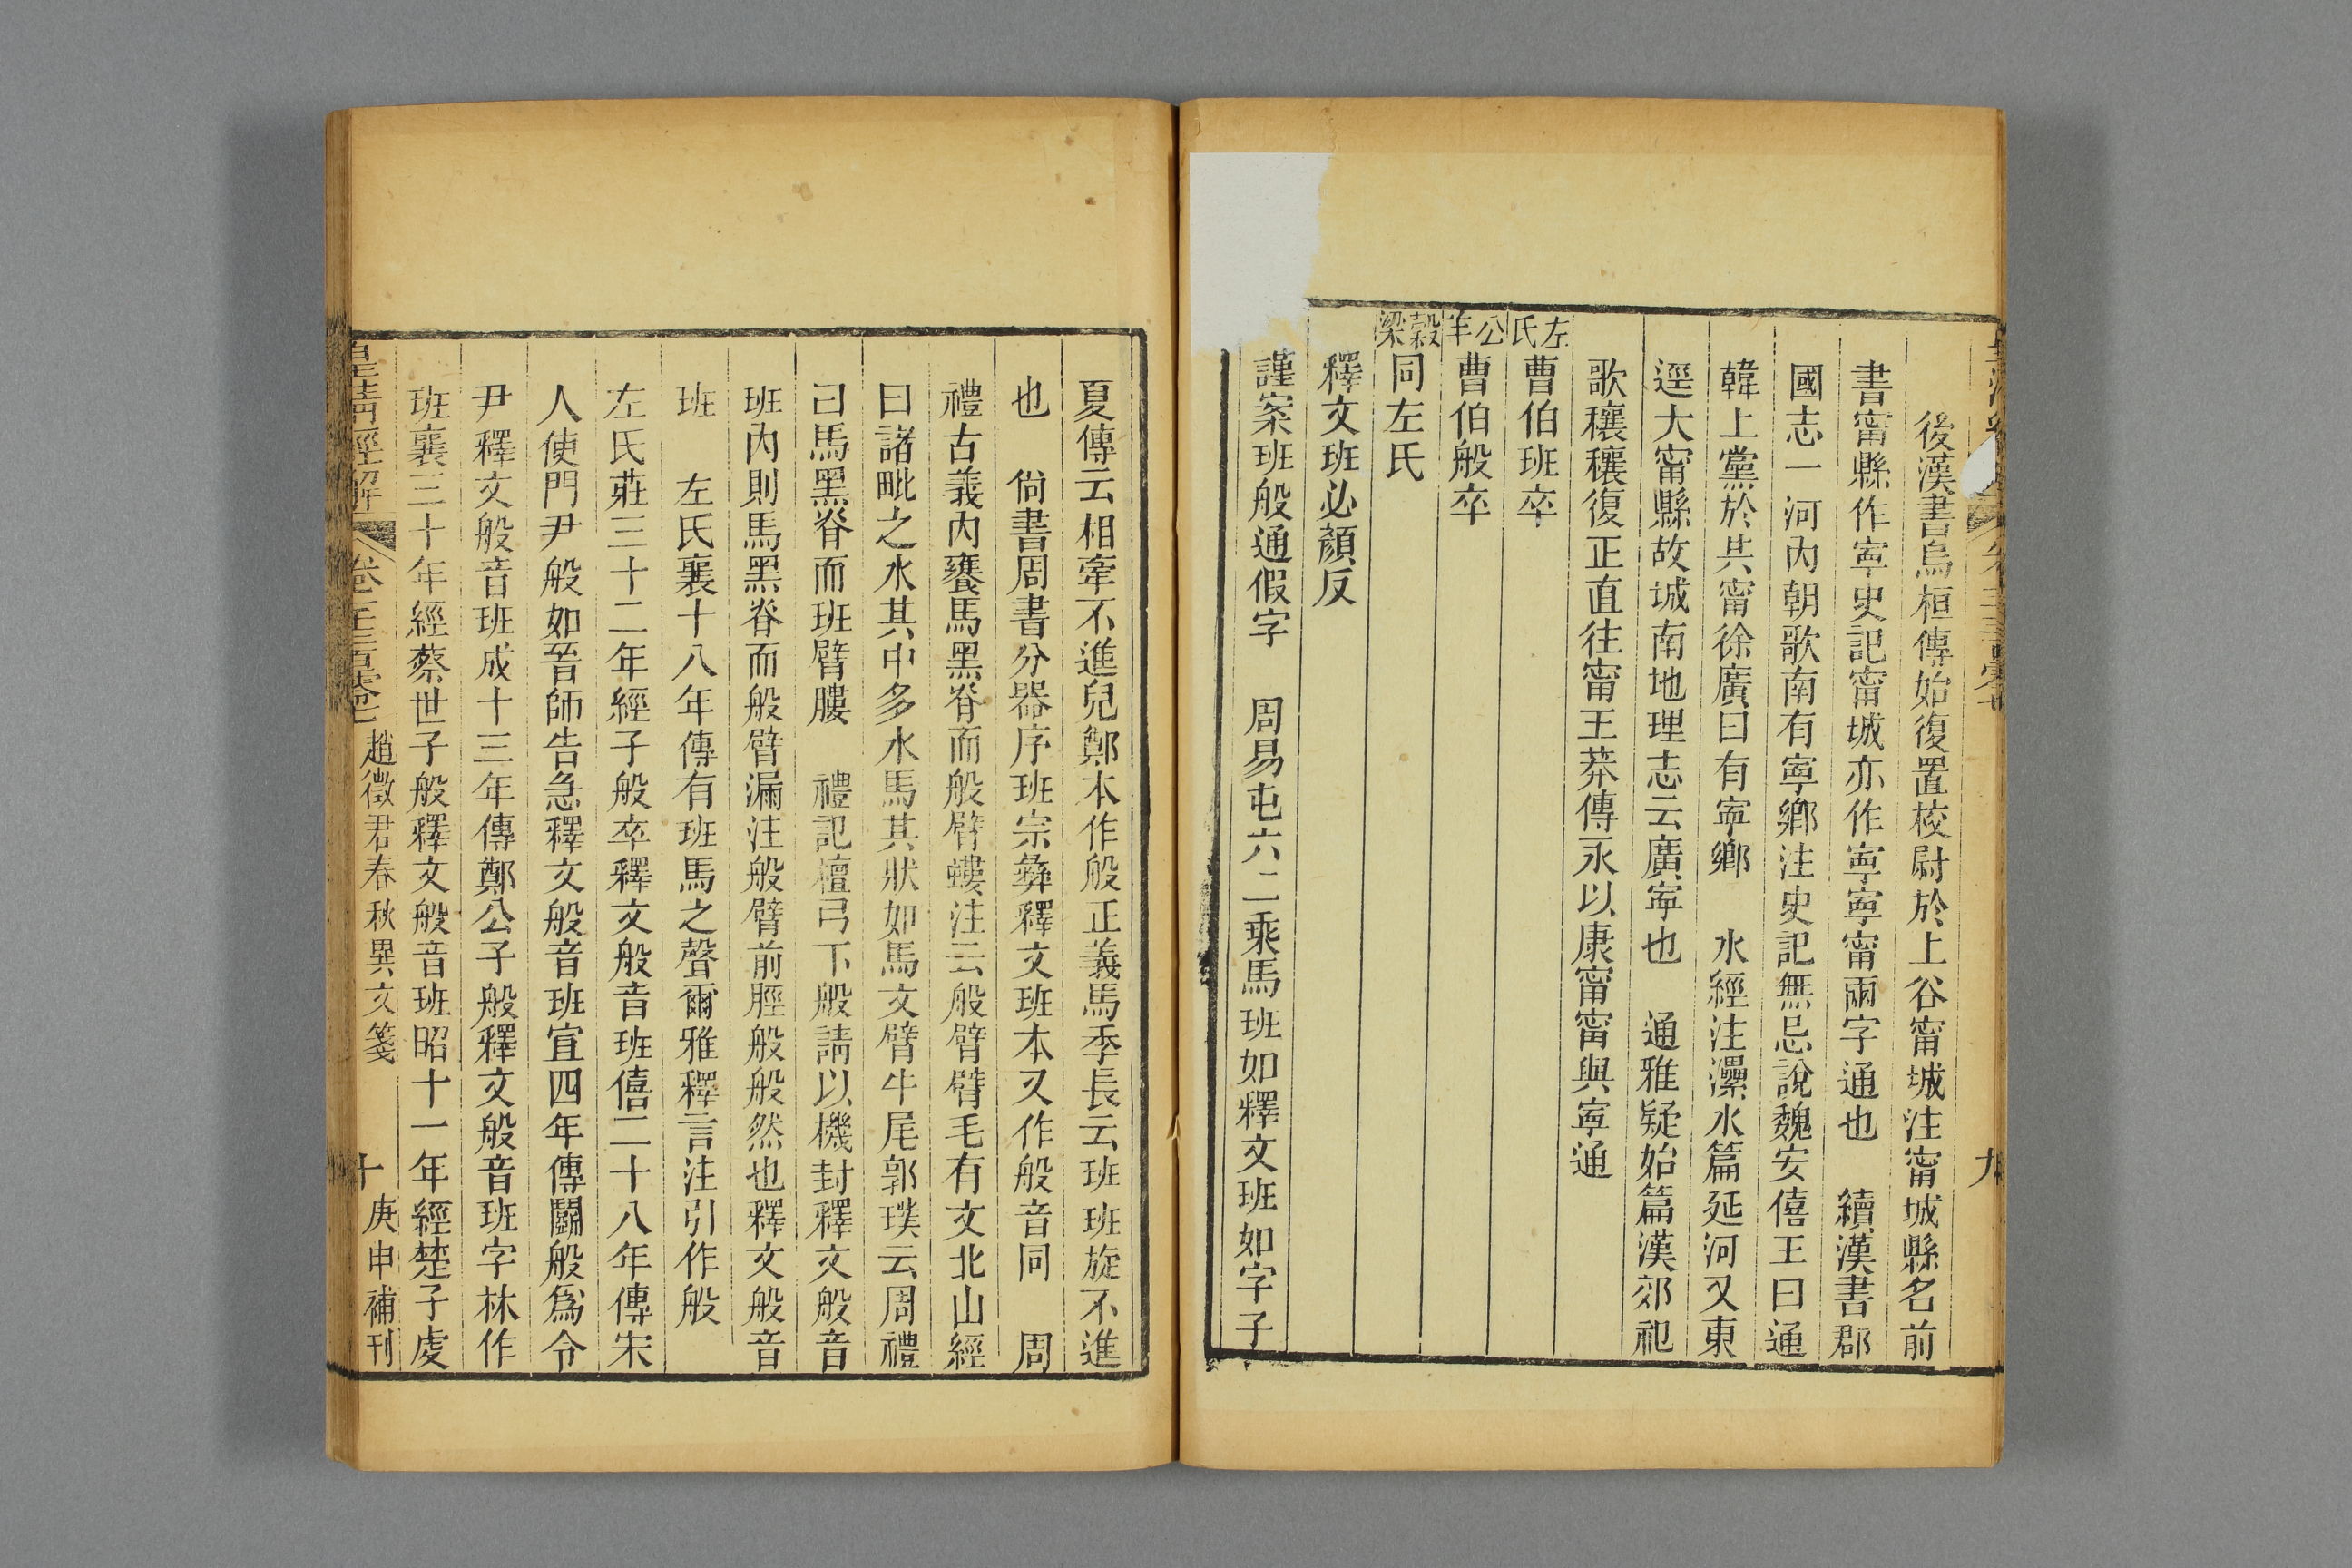 九
後漢書烏桓傳始復置校尉於上谷甯城注甯城縣名前
書甯縣作寧史記甯城亦作寧寧甯兩字通也 續漢書郡
國志一河內朝歌南有寧鄉注史記無忌說魏安僖王曰通
韓上黨於共甯徐廣曰有寧鄉 水經注灅水篇延河又東
逕大甯縣故城南地理志云廣寧也 通雅疑始篇漢郊祀
歌穰穰復正直往甯王莽傳永以康甯甯與寧通
左氏曹伯班卒
公羊曹伯般卒
穀梁同左氏
釋文班必顏反
謹案班般通假字 周易屯六二乘馬班如釋文班如字子
夏傳云相牽不進皃鄭本作般正義馬季長云班班旋不進
也 尙書周書分器序班宗彝釋文班本又作般音同 周
禮古義內饔馬黑脊而般臂螻注云般臂臂毛有文北山經
曰諸毗之水其中多水馬其狀如馬文臂牛尾郭璞云周禮
曰馬黑脊而班臂膢 禮記檀弓下般請以機封釋文般音
班內則馬黑脊而般臂漏注般臂前脛般般然也釋文般音
班 左氏襄十八年傳有班馬之聲爾雅釋言注引作般
左氏莊三十二年經子般卒釋文般音班僖二十八年傳宋
人使門尹般如晉師告急釋文般音班宣四年傳鬭般爲令
尹釋文般音班成十三年傳鄭公子般釋文般音班字林作
班襄三十年經蔡世子般釋文般音班昭十一年經楚子虔
皇淸經解 卷 趙徵君春秋異文箋 十 庚申補刊